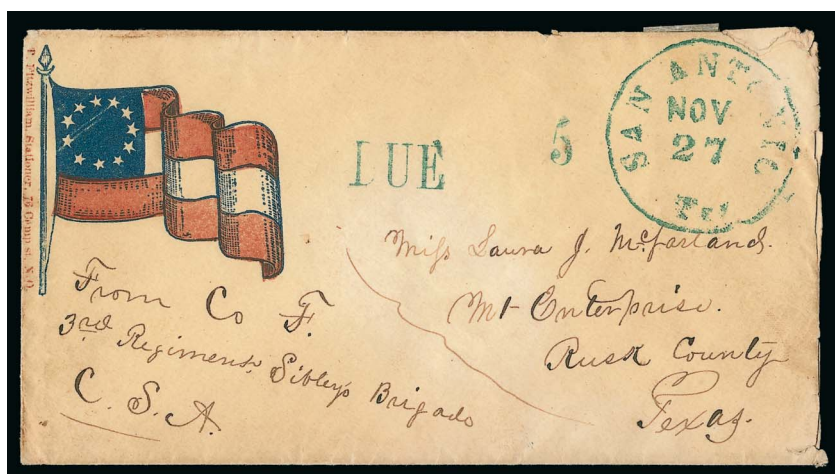 T. Fitzwilliam, Stationer, 76 Camp st. N.O.
SAN ANTONIO
NOV
27
Tex
DUE 5
Miss Laura J. McFarland.
Mt Enterprise.
Rusk County
Texas.
From Co F.
3rd Regiment, Sibley's Brigade
C. S. A.